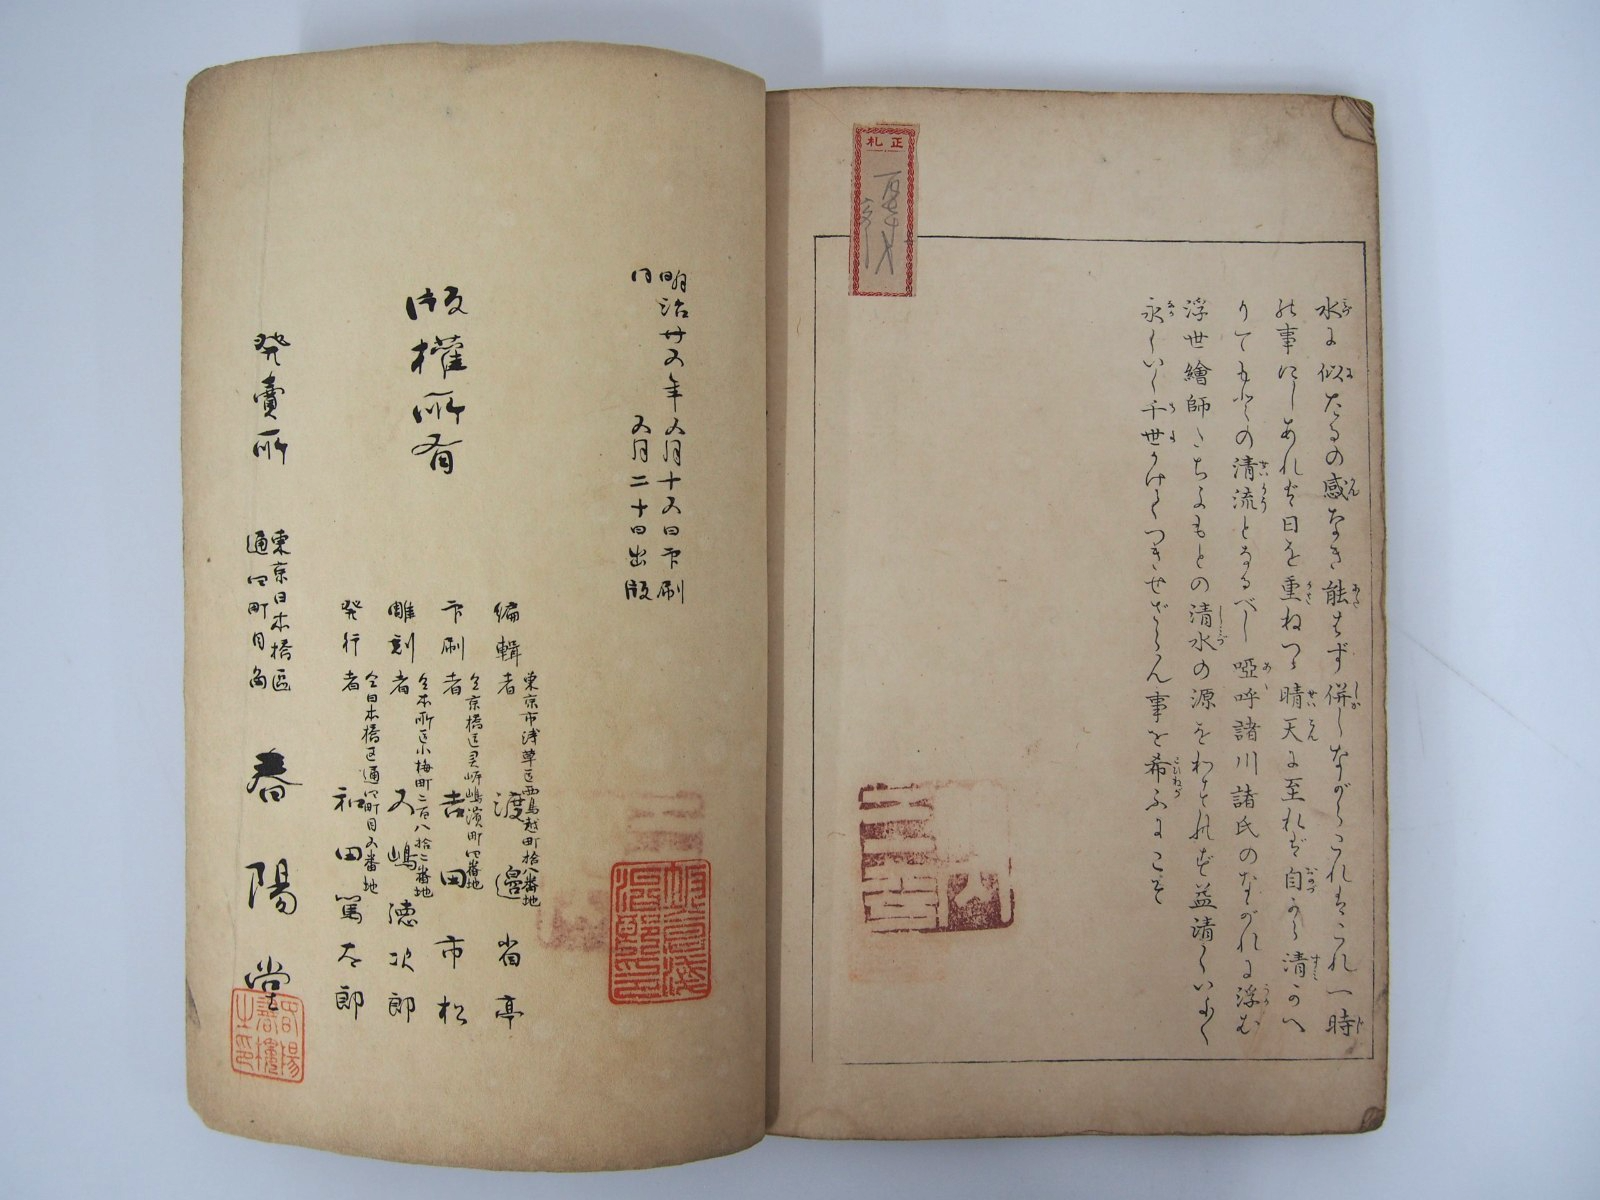 正札
水に似たるの感なき能はず併しながらこれはこれ一時
の事にしあれば日を重ねつゝ晴天に至れば自から清かへ
りてもとの清流となるべし啞呼諸川諸氏のながれに浮む
浮世繪師たちよもとの清水の源をわすれず益清くいよく
永くいく千世かけてつきせざらん事を希ふにこそ
明治廿五年五月十五日印刷
同 五月二十日出版
版權所有
東京市浅草区西鳥越町拾八番地
編輯者 渡邉省亭
仝京橋区霊岸嶋濱町四番地
印刷者 吉田市松
仝本所区小梅町二百八拾二番地
雕刻者 五嶋徳次郎
仝日本橋区通四町目五番地
発行者 和田篤太郎
発賣所 東京日本橋区
通四町目角
春陽堂